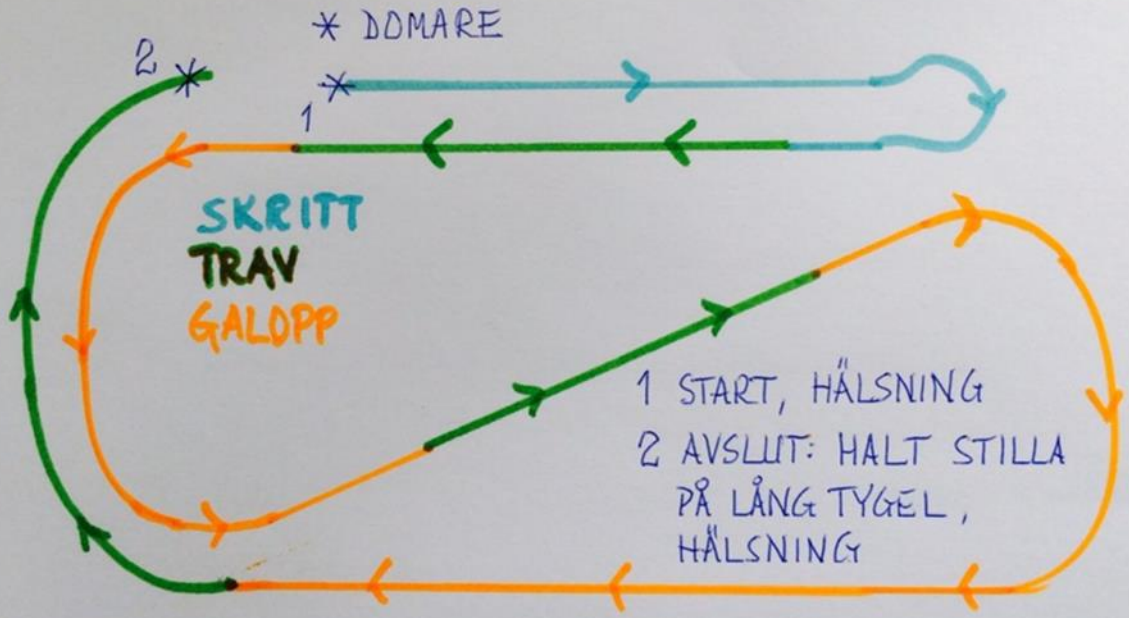 * DOMARE
2
1
SKRITT
TRAV
GALOPP
1 START, HÄLSNING
2 AVSLUT: HALT STILLA
PÅ LÅNG TYGEL,
HÄLSNING